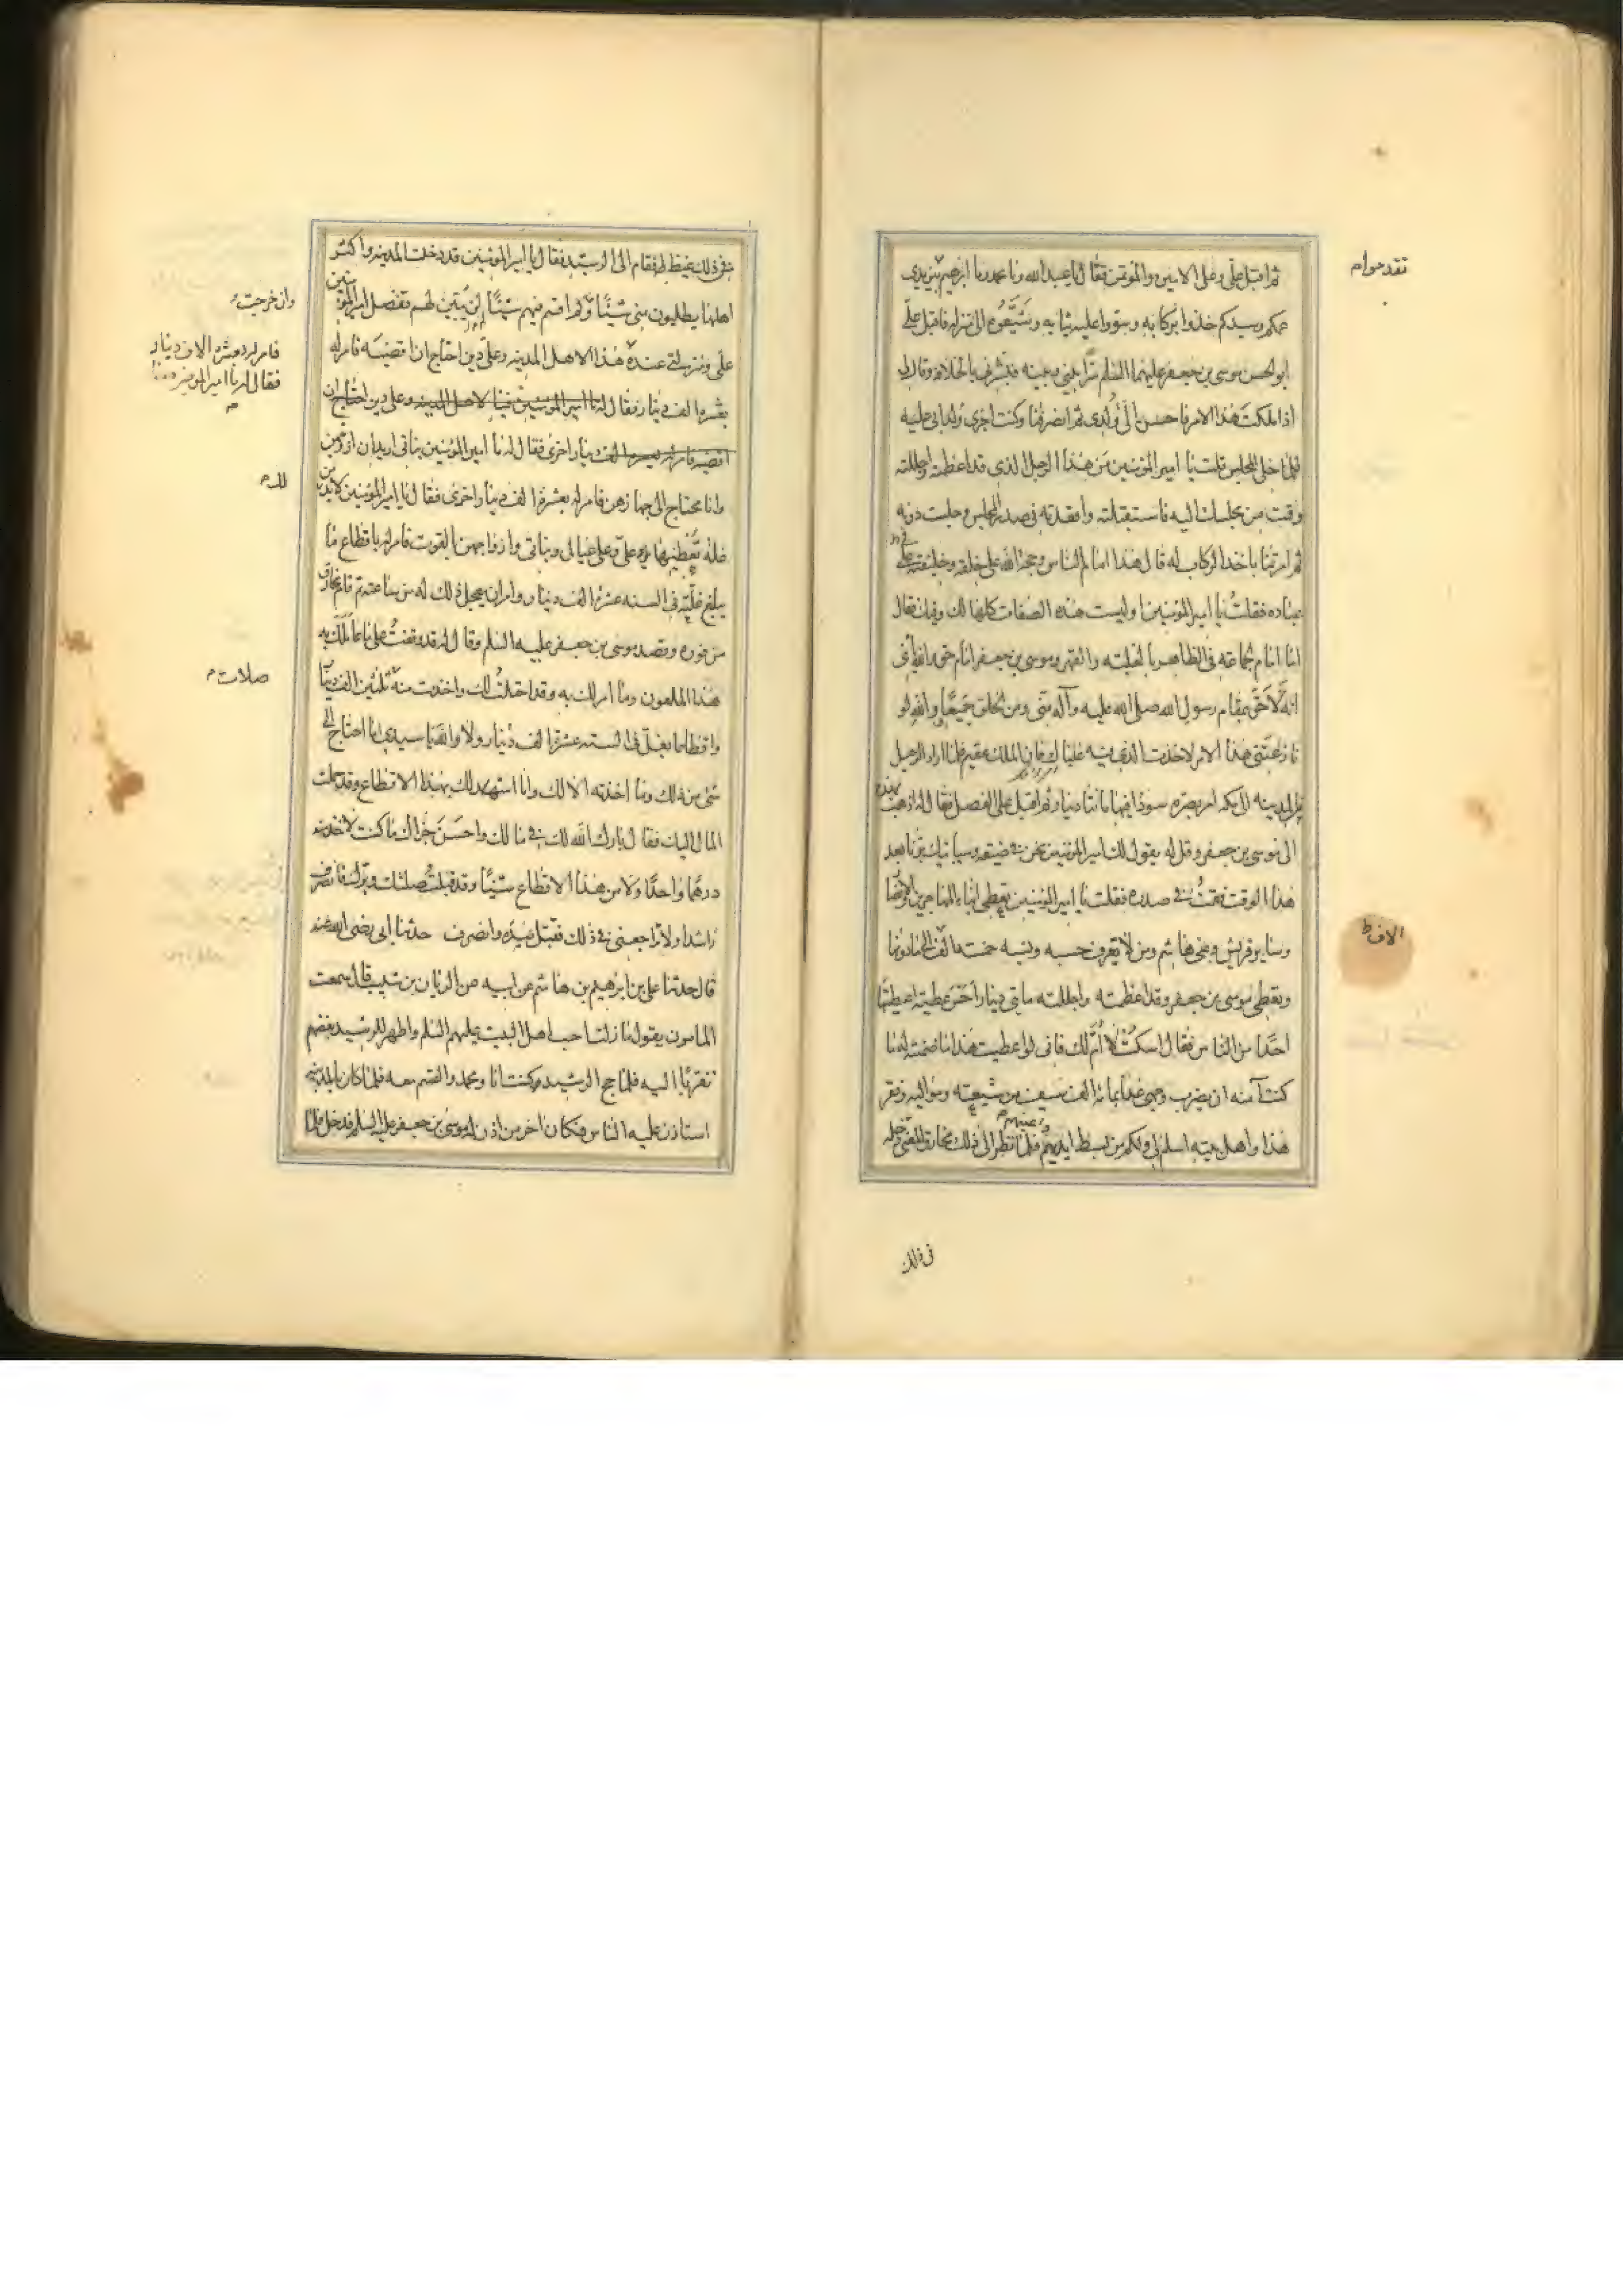 ثم اقبل علّى وعلى الامين والمؤتمن فقال يا عبد الله ويا محمد ويا ابرهيم بين يدى
عمكم وسيدكم خذوا بركابه وسووا عليه ثيابه وشيّعوه الى منزله فاقبل علىّ
ابو الحسن موسى بن جعفر عليهما السلم سرّا بينى وبينه فبشرنى بالخلافة وقال لى
اذا ملكت هذا الامر فاحسن الى وُلدى ثم انصرفنا وكنت اجرى وُلد ابى عليه
فلما خلى المجلس قلت يا امير المؤمنين مَن هذا الرجل الذى قد اعظمته واجللته
وقمت من مجلسك اليه فاستقبلته واقعدته فى صدر المجلس وجلست دونه
ثم امرتنا باخذ الركاب له قال هذا امام الناس وحجة الله على خلقه وخليفته على
عباده فقلتُ يا امير المؤمنين او ليست هذه الصفات كلها لك وفيك فقال
انا امام الجماعة فى الظاهر بالغلبة والقهر وموسى بن جعفر امام حق والله يا بنى
انه لأحَقّ بمقام رسول الله صلى الله عليه وآله منّى ومن الخلق جميعًا ووالله لو
نازعتنى هذا الامر لاخذت الذى فيه عيناك فان الملك عقيم فلما اراد الرحيل
من المدينه الى مكه امر بصرة سودا فيها مائتا دينار ثم اقبل على الفضل فقال له اذهب بهذه
الى موسى بن جعفر وقل له يقول لك امير المؤمنين نحن فى ضيقه وسياتيك برّنا بعد
هذا الوقت فقمتُ فى صدره فقلت يا امير المؤمنين تعطى ابناء المهاجرين والانصار
وساير قريش وبنى هاشم ومن لا تعرف حسبه ونسبه خمسة آلاف دينار الى ما دونها
وتعطى موسى بن جعفر وقد اعظمته واجللته مايتى دينار اخسّ عطية اعطيتها
احدًا من الناس فقال اسكت لا أُمّ لك فانى لو اعطيت هذا ما ضمنته له ما
كنت آمنه ان يضرب وجهى غدا بمائة الف سيف من شيعته ومواليه وفقر
هذا واهل بيته اسلم لى ولكم من بسط ايديهم واعينهم فلما نظر الى ذلك مخارق المغنى دخله
الاف ط
فى ذلك
فى ذلك غيظ فقام الى الرشيد فقال يا امير المؤمنين قد دخلت المدينه واكثر
اهلها يطلبون منى شيئًا وان خرجت ولم اقسم فيهم شيئًا لم يتبين لهم تفضل امير المؤمنين
علّى ومنزلتى عنده هذا لاهل المدينه وعلىّ دين احتاج ان اقضيه فامر له
بعشرة الف دينار فقال له يا امير المؤمنين هذا لاهل المدينه وعلى دين احتاج ان
اقضيه فامر له بعشره الف دينار اخرى فقال له يا امير المؤمنين بناتى اريد ان ازوجهن
وانا محتاج الى جهازهن فامر له بعشرة الف دينار اخرى فقال يا امير المؤمنين لابد من
غلة تُعطينيها يرد علىّ وعلى عيالى وبناتى وازواجهن القوت فامر له باقطاع ما
يبلغ غلّته فى السنه عشرة الف دينار وامر ان يعجل ذلك له من ساعته ثم قام مخارق
من فوره وقصد موسى بن جعفر عليه السلم وقال له قد وقفتُ على ما عاملك به
هذا الملعون وما امر لك به وقد احتلتُ لك واخذت منه صلات ثلثين الف دينار
واقطاعا يغلّ فى السنه عشرة الف دينار ولا والله يا سيدى ما احتاج الى
شئ من ذلك وما اخذته الا لك وانا اشهد لك بهذا الاقطاع وقد حملت
المال اليك فقال بارك الله لك فى مالك واحسن جزاك ما كنت لاخذ منه
درهمًا واحدًا ولا من هذا الاقطاع شيئًا وقد قبلتُ صلتك وبرّك فانصرف
راشدا ولا تراجعنى فى ذلك فقبل يده وانصرف حدثنا ابى رضى الله عنه
قال حدثنا على بن ابرهيم بن هاشم عن ابيه عن الريان بن شبيب قال سمعت
المامون يقول ما زلت احب اهل البيت عليهم السلم واظهر للرشيد بغضهم
تقرّبا اليه فلما حج الرشيد وكنت انا ومحمد والقسم معه فلما كان بالمدينه
استاذن عليه الناس فكان اخر من اذن له موسى بن جعفر عليه السلم فدخل فلما
وان خرجت
فامر له بعشره الاف دينار
فقال له يا امير المؤمنين هذا
صلات م